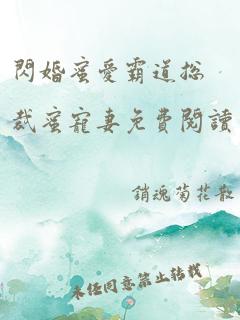 閃婚蜜愛霸道总
裁蜜寵妻免費閱讀
銷魂菊花散
未经同意禁止转载